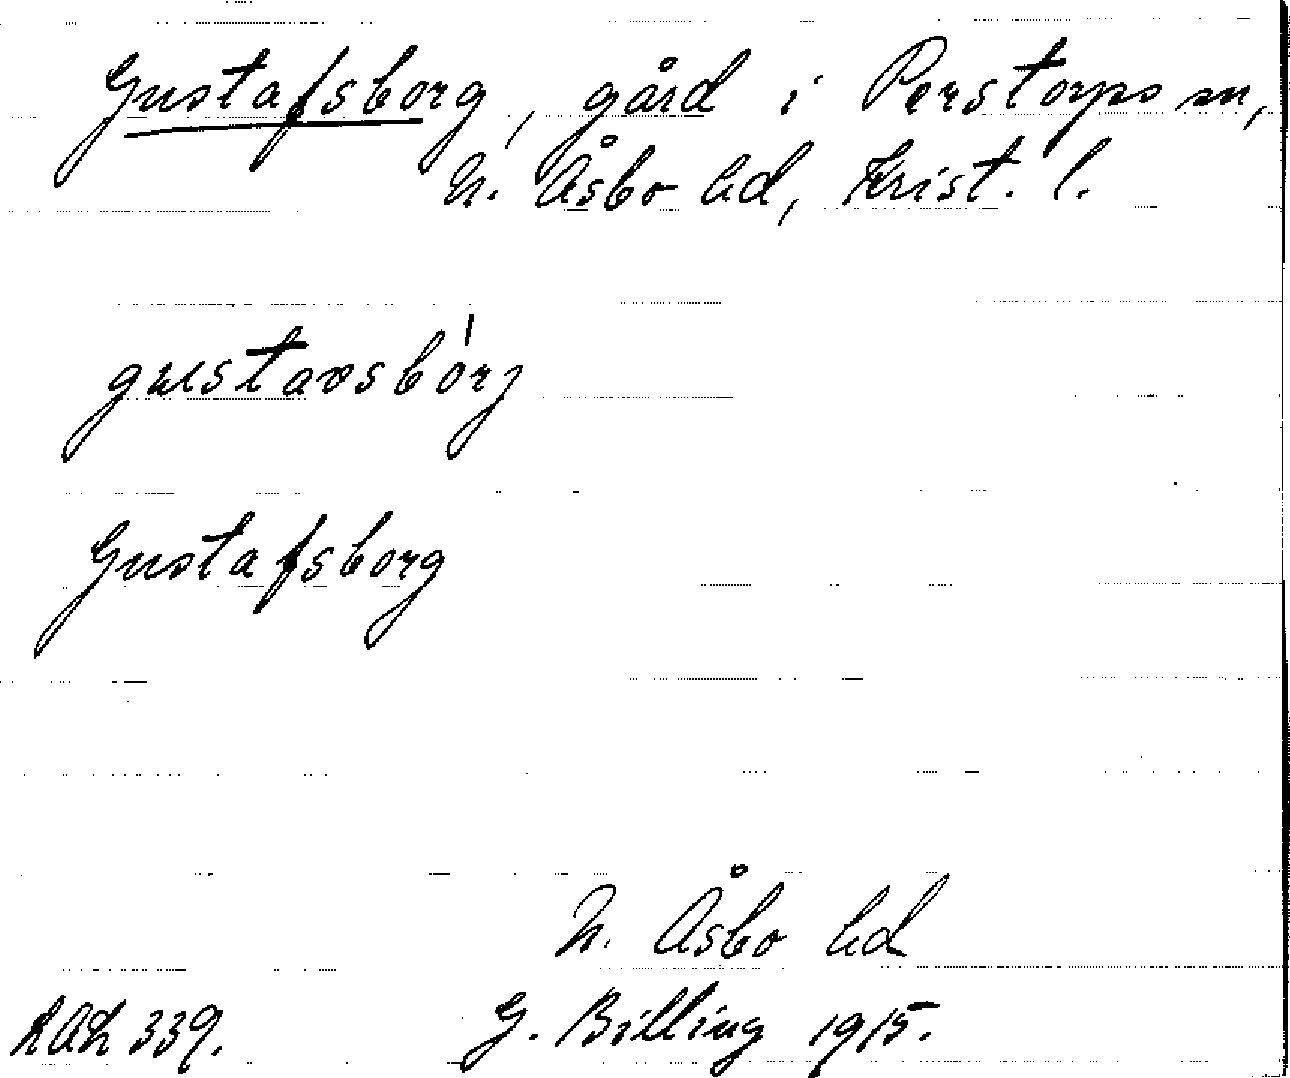 Gustafsborg, gård i Perstorps sn,
N. Åsbo hd, Krist. l.
gustavsbórj
Gustafsborg
N. Åsbo hd
LAL 339. G. Billing 1915.